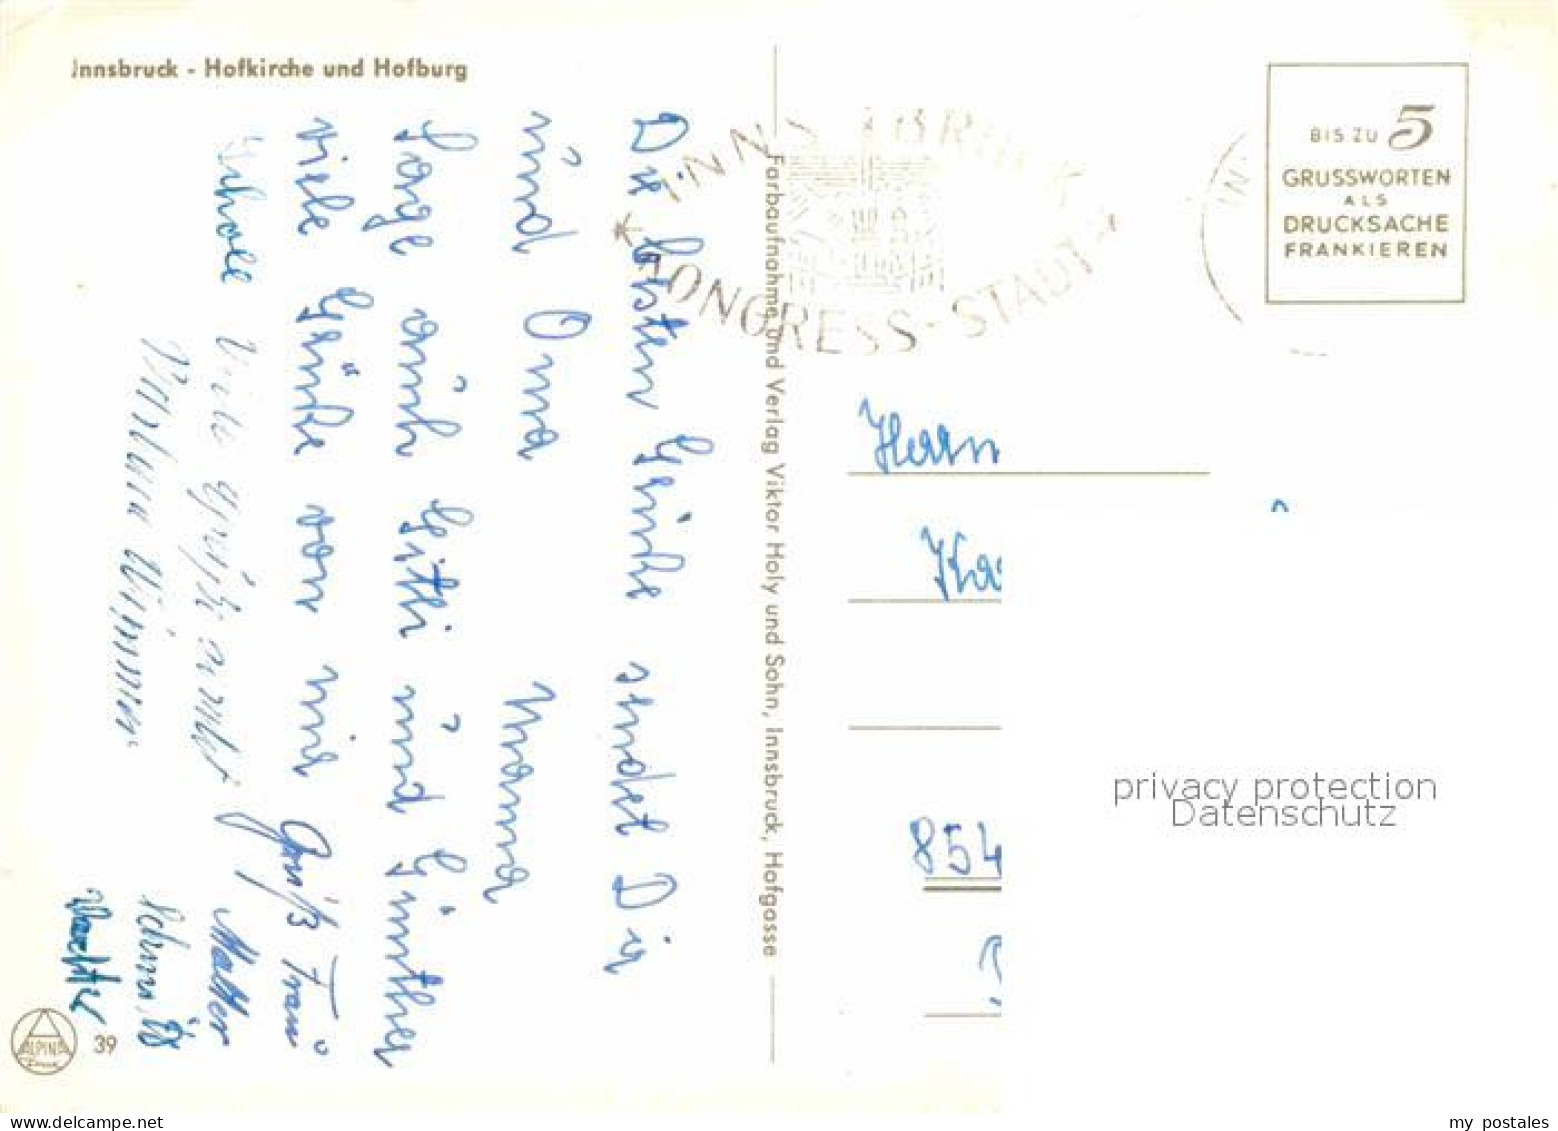 Innsbruck - Hofkirche und Hofburg
Die besten Grüße sendet Dir
und Oma Mama
Sorge auch Gitti und Günther
viele Grüße von mir
Viele Grüße
Gruß Frau
Farbaufnahme und Verlag Viktor Holy und Sohn, Innsbruck, Hofgasse
INNSBRUCK
KONGRESS-STADT
BIS ZU 5
GRUSSWORTEN
ALS
DRUCKSACHE
FRANKIEREN
Herrn
854
privacy protection
Datenschutz
ALPINA
39
my postales